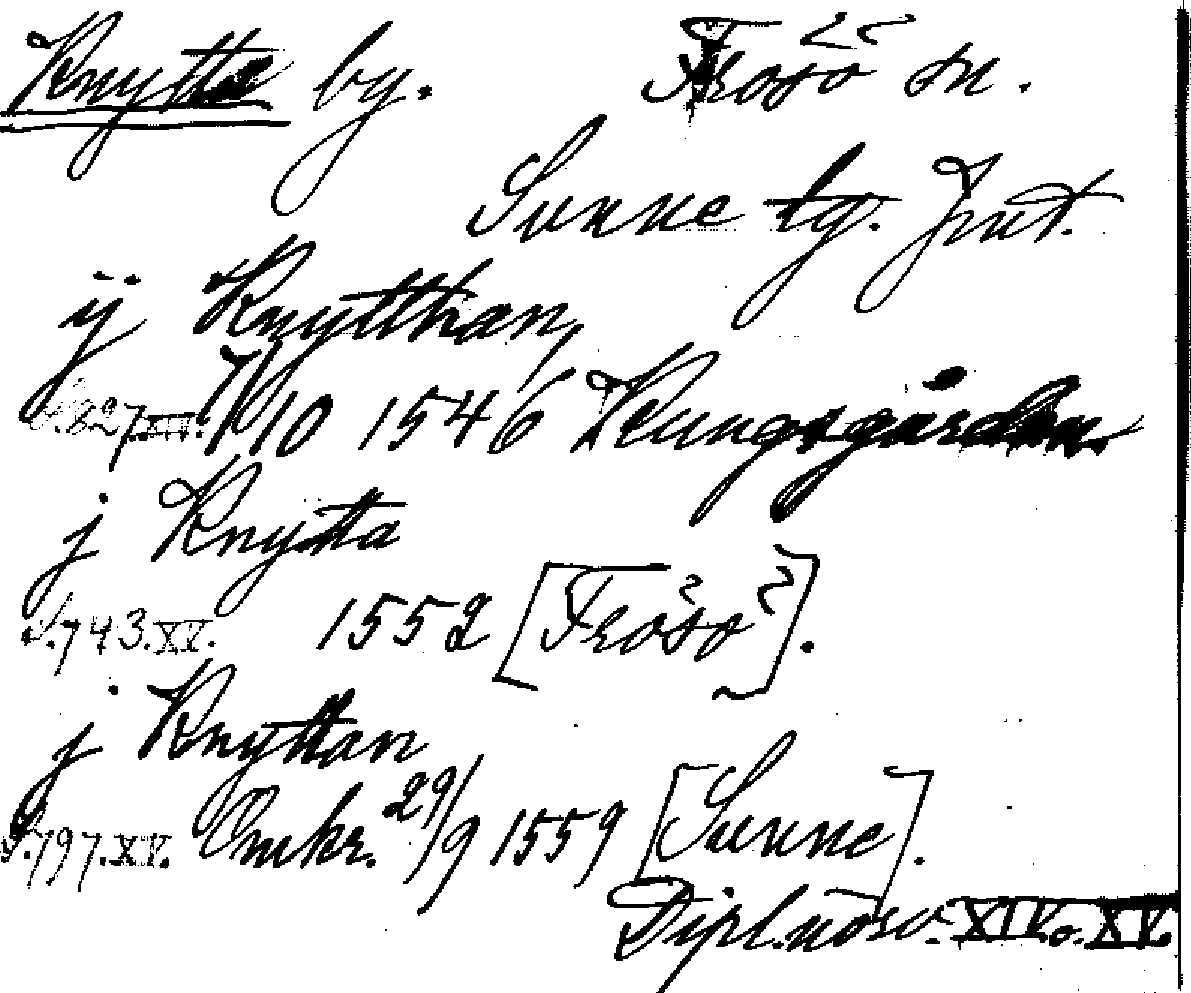 Knytta by. Frösö sn.
Sunne tg. Jmt.
ij Knytthan,
S.827.XIV. 7/10 1546 Kungsgården
j Knytta
S.743.XV. 1552 [Frösö].
j Knyttan
S.797.XV. Omkr. 29/9 1559 [Sunne].
Dipl. XIV o. XV.